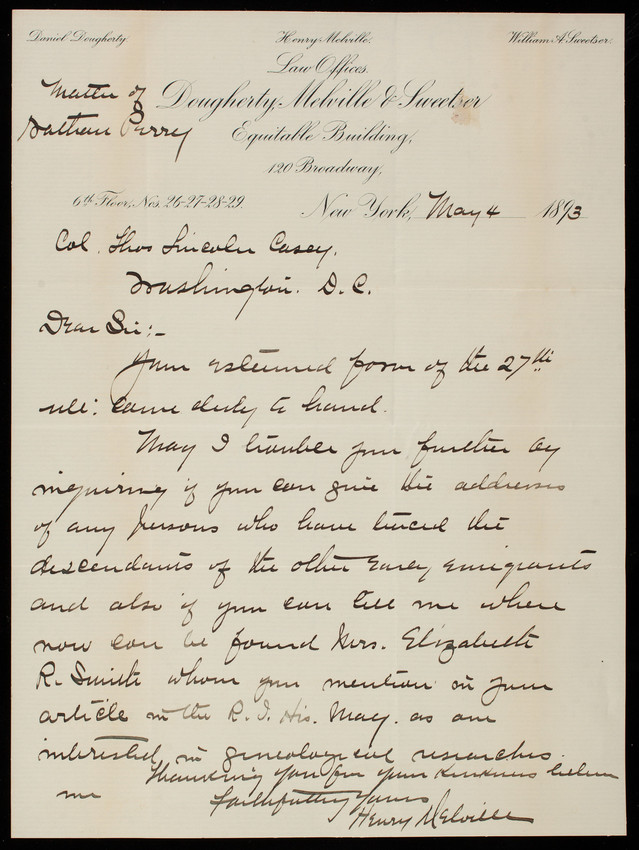 Daniel Dougherty. Henry Melville. William A. Sweetser.
Law Offices.
Matter of Dougherty, Melville & Sweetser
Nathan Perry Equitable Building,
120 Broadway,
6th Floor, Nos. 26-27-28-29. New York, May 4 1893
Col. Thos Lincoln Casey,
Washington. D.C.
Dear Sir:-
Your esteemed favor of the 27th
ult: came duly to hand.
May I trouble you further by
inquiring if you can give the addresses
of any persons who have traced the
descendants of the other Casey emigrants
and also if you can tell me where
now can be found Mrs. Elizabeth
R. Smith whom you mention in your
article in the R.I. His. Mag. as one
interested in geneological researches.
Thanking you for your kindness believe
me Faithfully Yours
Henry Melville